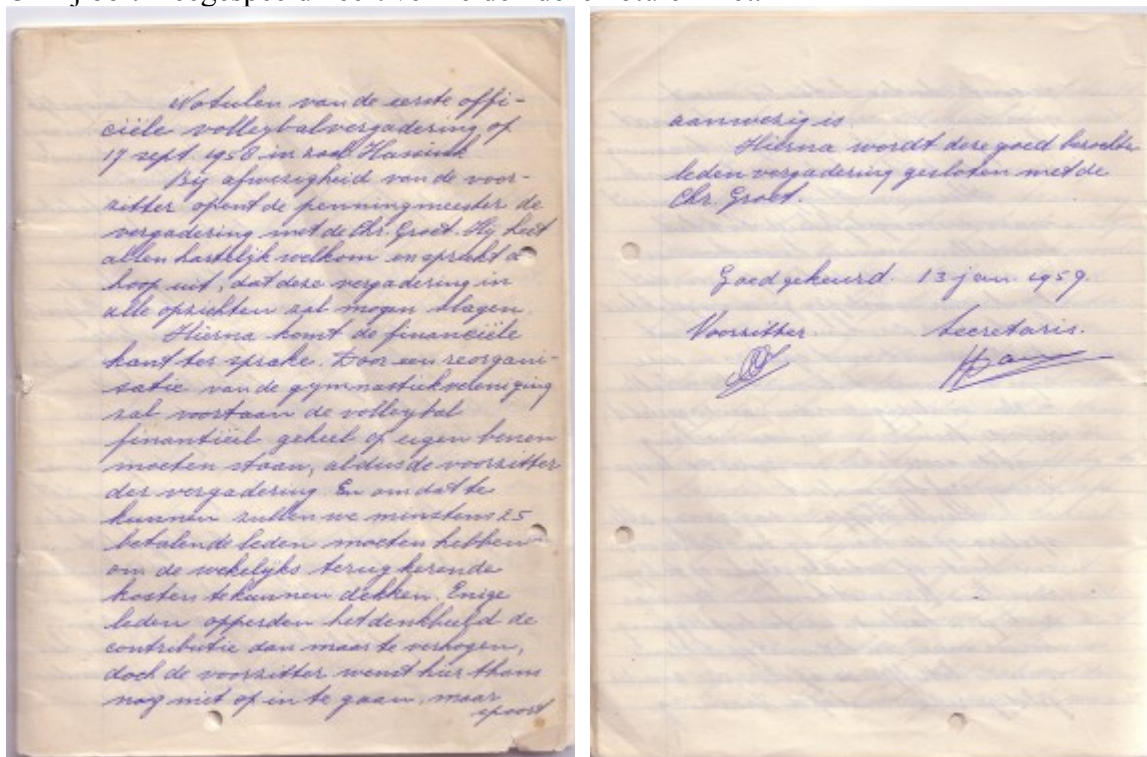 Notulen van de eerste offi-
ciële volleybalvergadering, op
17 sept. 1958 in zaal Hassink
Bij afwezigheid van de voor-
zitter opent de penningmeester de
vergadering met de Chr. Groet. Hij heet
allen hartelijk welkom en spreekt de
hoop uit, dat deze vergadering in
alle opzichten zal mogen slagen.
Hierna komt de financiële
kant ter sprake. Door een reorgani-
satie van de gymnastiekvereniging
zal voortaan de volleybal
financiëel geheel op eigen benen
moeten staan, aldus de voorzitter
der vergadering. En om dat te
kunnen zullen we minstens 25
betalende leden moeten hebben
om de wekelijks terugkerende
kosten te kunnen dekken. Enige
leden opperden het denkbeeld de
contributie dan maar te verhogen,
doch de voorzitter wenst hier thans
nog niet op in te gaan, maar
spoort
aanwezig is
Hierna wordt deze goed bezochte
leden vergadering gesloten met de
Chr. Groet.
Goedgekeurd. 13 jan. 1959.
Voorzitter. Secretaris.